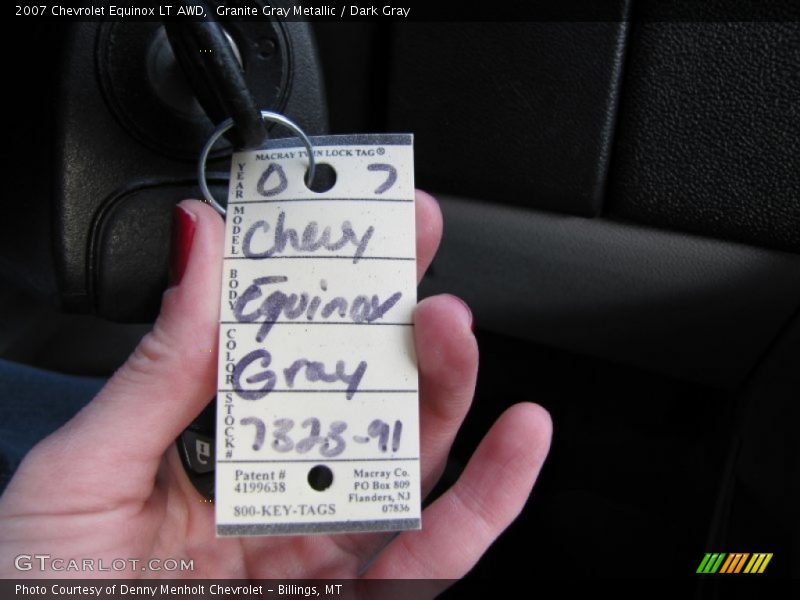 2007 Chevrolet Equinox LT AWD,  Granite Gray Metallic / Dark Gray
MACRAY TWIN LOCK TAG®
YEAR 0 7
MODEL Chevy
BODY Equinox
COLOR Gray
STOCK# 7323-91
Patent #
4199638
800-KEY-TAGS
Macray Co.
PO Box 809
Flanders, NJ
07836
GTCARLOT.COM
Photo Courtesy of Denny Menholt Chevrolet - Billings, MT